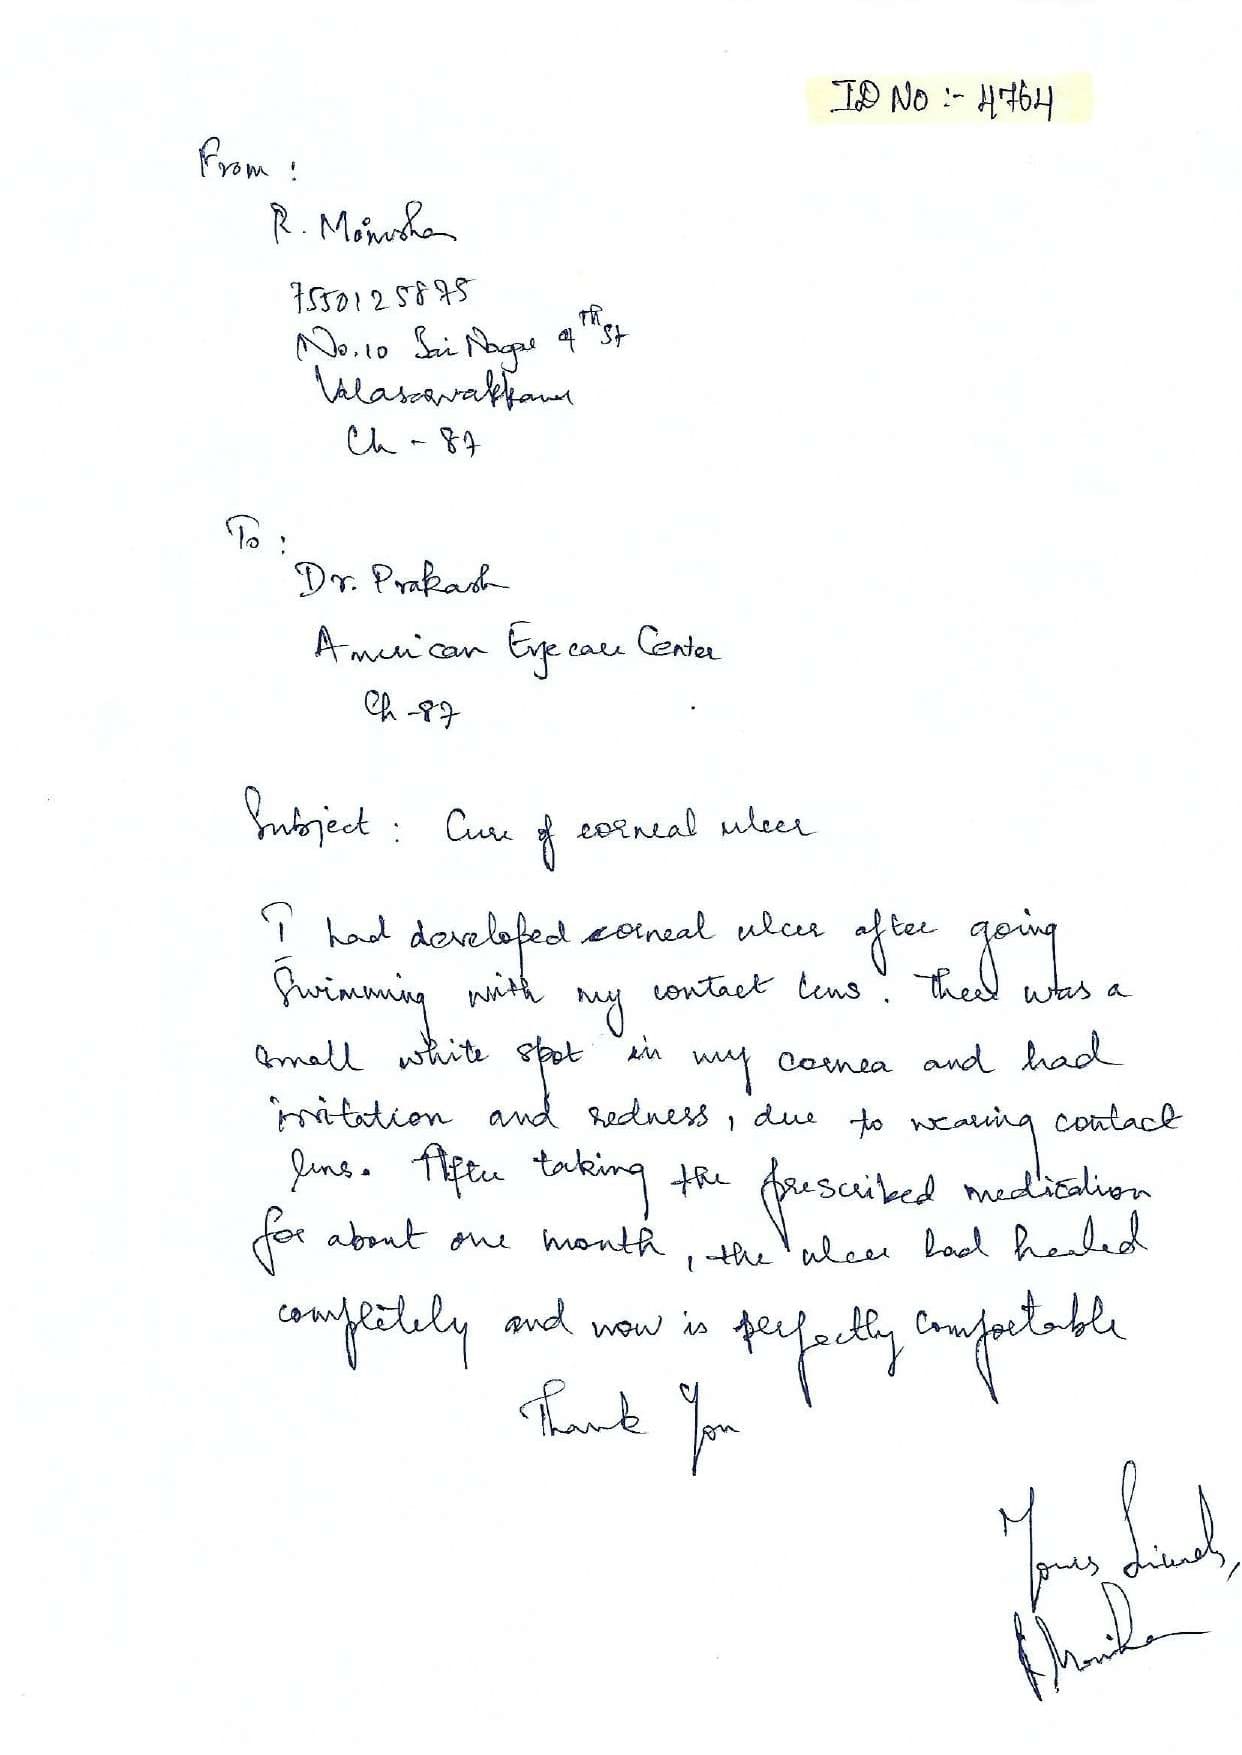 ID NO :- 4764
From :
R. Monisha
7550125875
No.10 Sai Nagar 9th St
Valasaravakkam
Ch - 87
To :
Dr. Prakash
American Eye care Center
Ch -87
Subject : Cure of corneal ulcer
I had developed corneal ulcer after going
swimming with my contact lens. There was a
small white spot in my cornea and had
irritation and redness, due to wearing contact
lens. After taking the prescribed medication
for about one month, the ulcer had healed
completely and now is perfectly comfortable
Thank You
Yours Sincerely,
R. Monisha